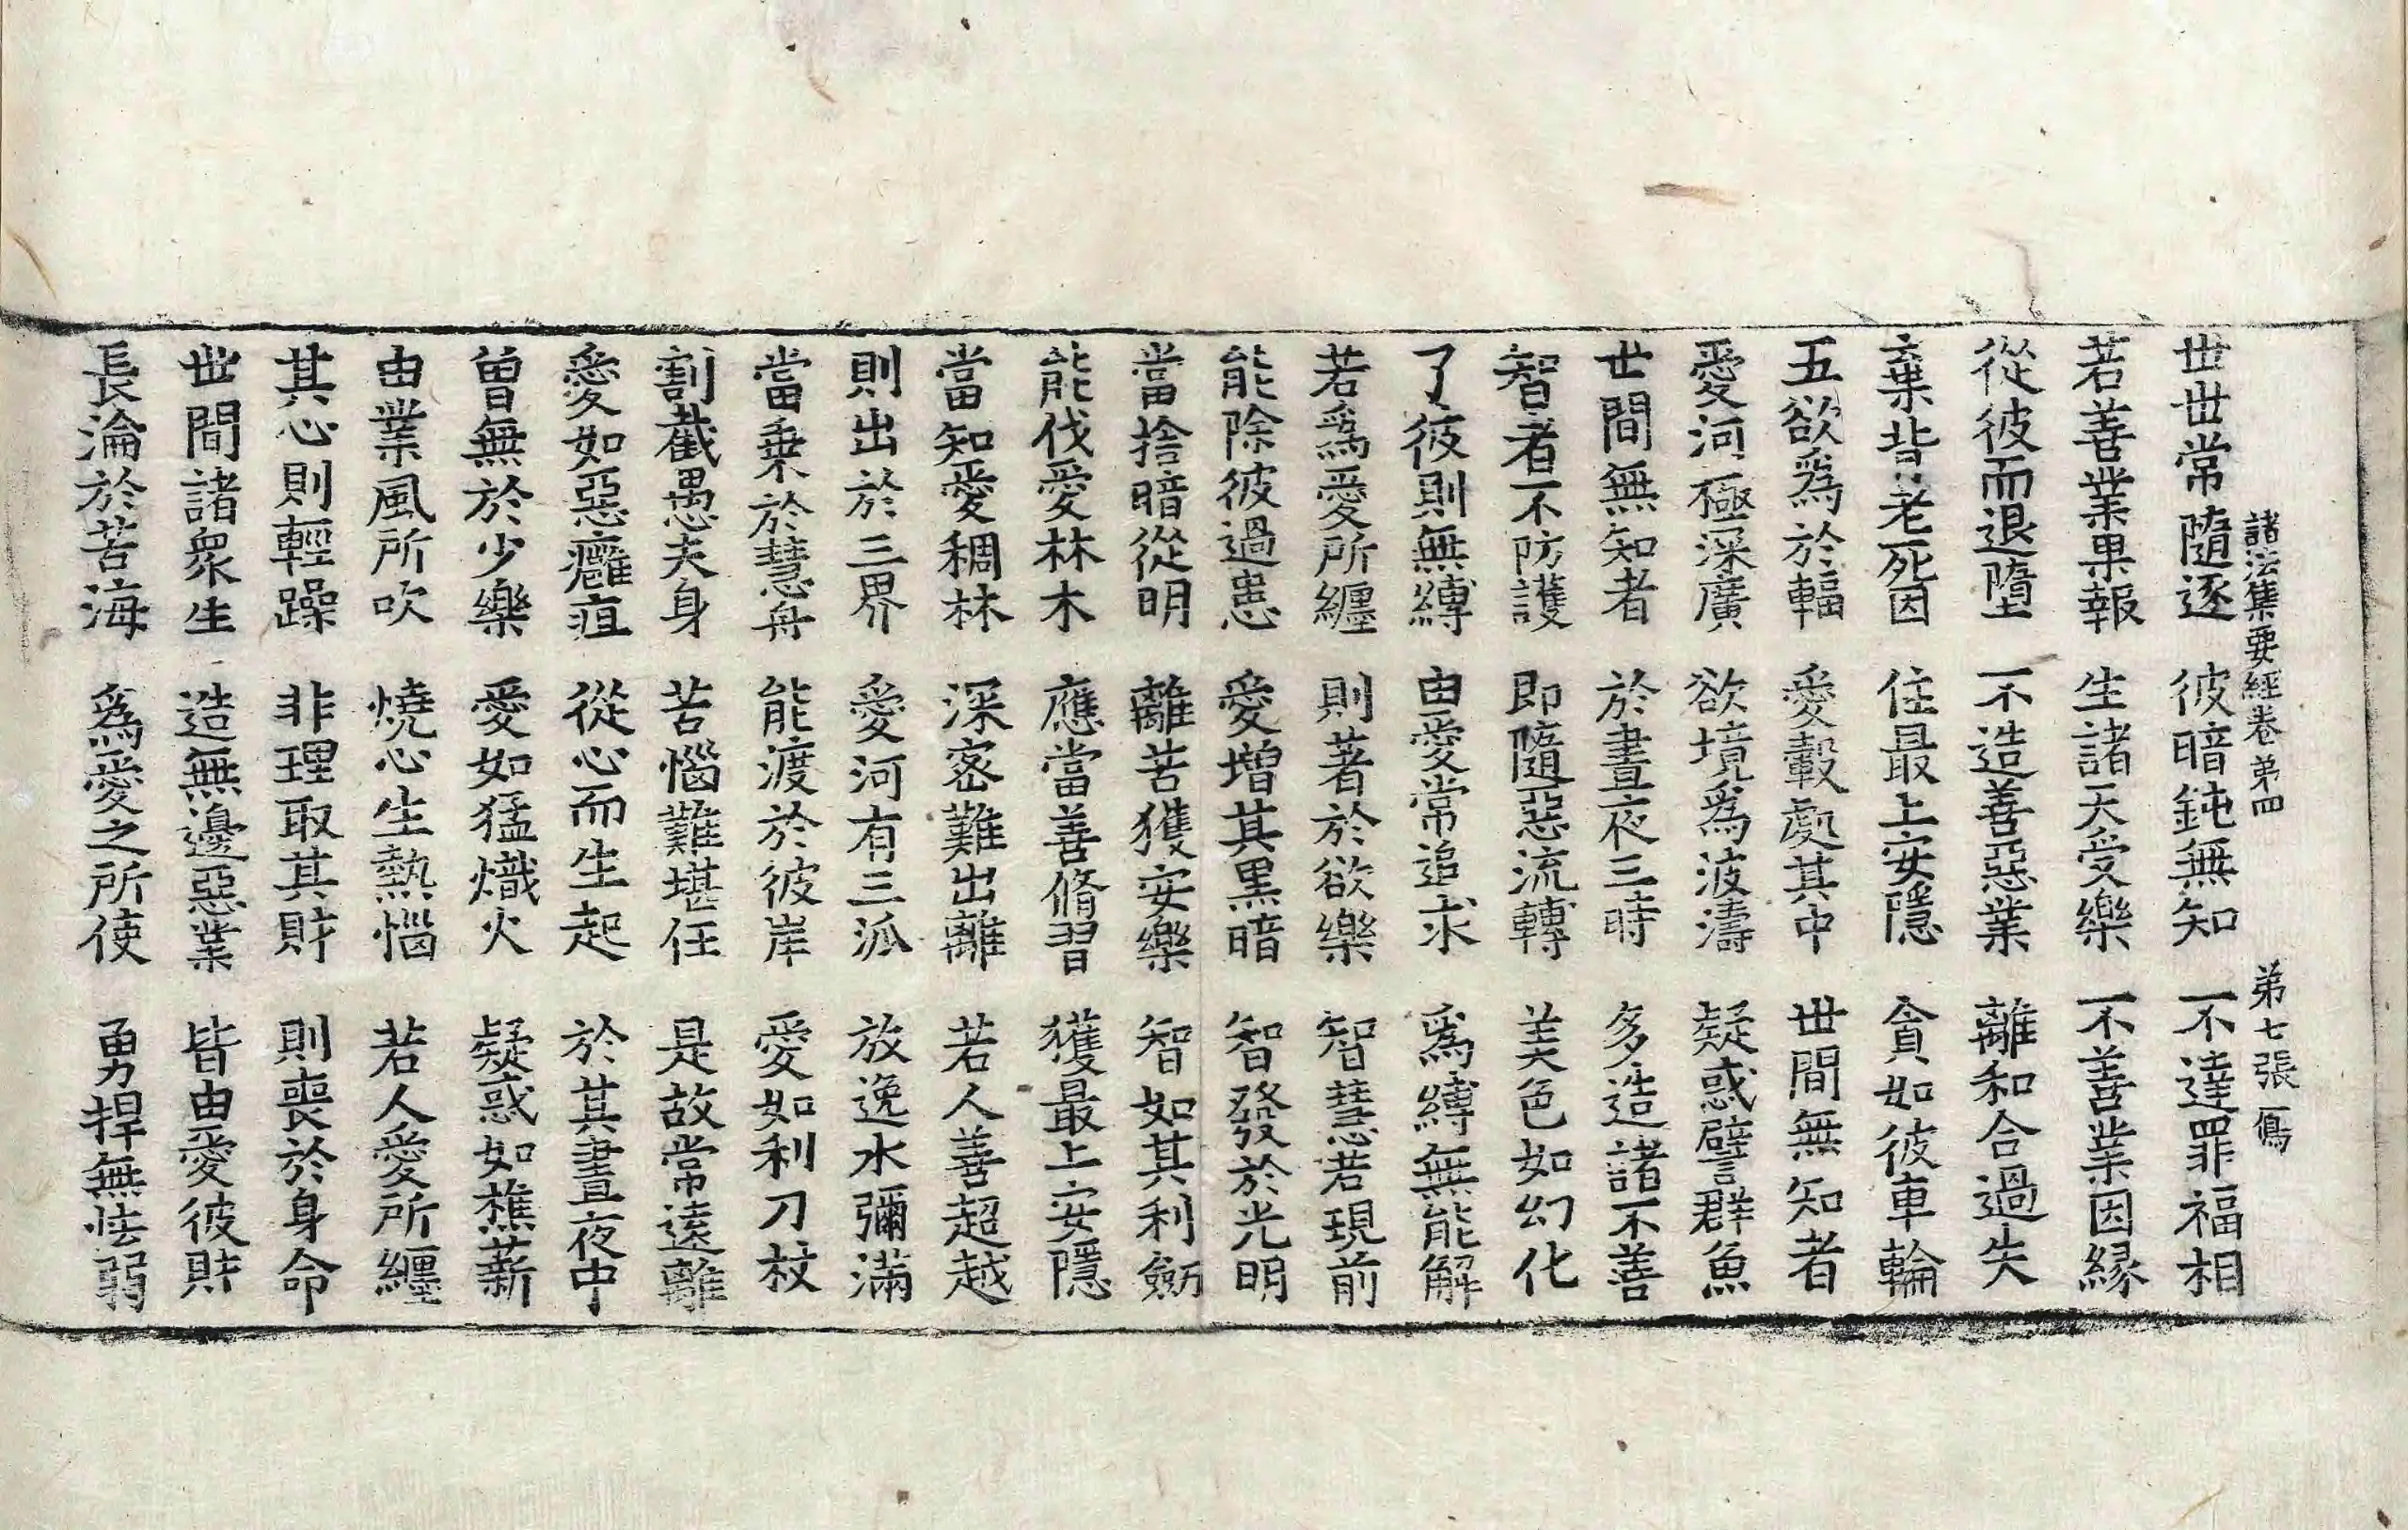 諸法集要經卷第四　第七張　㢠
世世常隨逐　彼暗鈍無知　不達罪福相
若善業果報　生諸天受樂　不善業因縁
從彼而退墮　不造善惡業　離和合過失
棄背老死因　住最上安隱　貪如彼車輪
五欲爲於輻　愛轂處其中　世間無知者
愛河極深廣　欲境爲波濤　疑惑譬群魚
世間無知者　於晝夜三時　多造諸不善
智者不防護　即隨惡流轉　美色如幻化
了彼則無縛　由愛常追求　爲縛無能解
若爲愛所纏　則著於欲樂　智慧若現前
能除彼過患　愛增其黑暗　智發於光明
當捨暗從明　離苦獲安樂　智如其利劒
能伐愛林木　應當善脩習　獲最上安隱
當知愛稠林　深密難出離　若人善超越
則出於三界　愛河有三派　放逸水彌滿
當乗於慧舟　能渡於彼岸　愛如利刀杖
割截愚夫身　苦惱難堪任　是故常遠離
愛如惡癰疽　從心而生起　於其晝夜中
曾無於少樂　愛如猛熾火　疑惑如樵薪
由業風所吹　燒心生熱惱　若人愛所纏
其心則輕躁　非理取其財　則喪於身命
世間諸衆生　造無邊惡業　皆由愛彼財
長淪於苦海　爲愛之所使　勇捍無怯弱